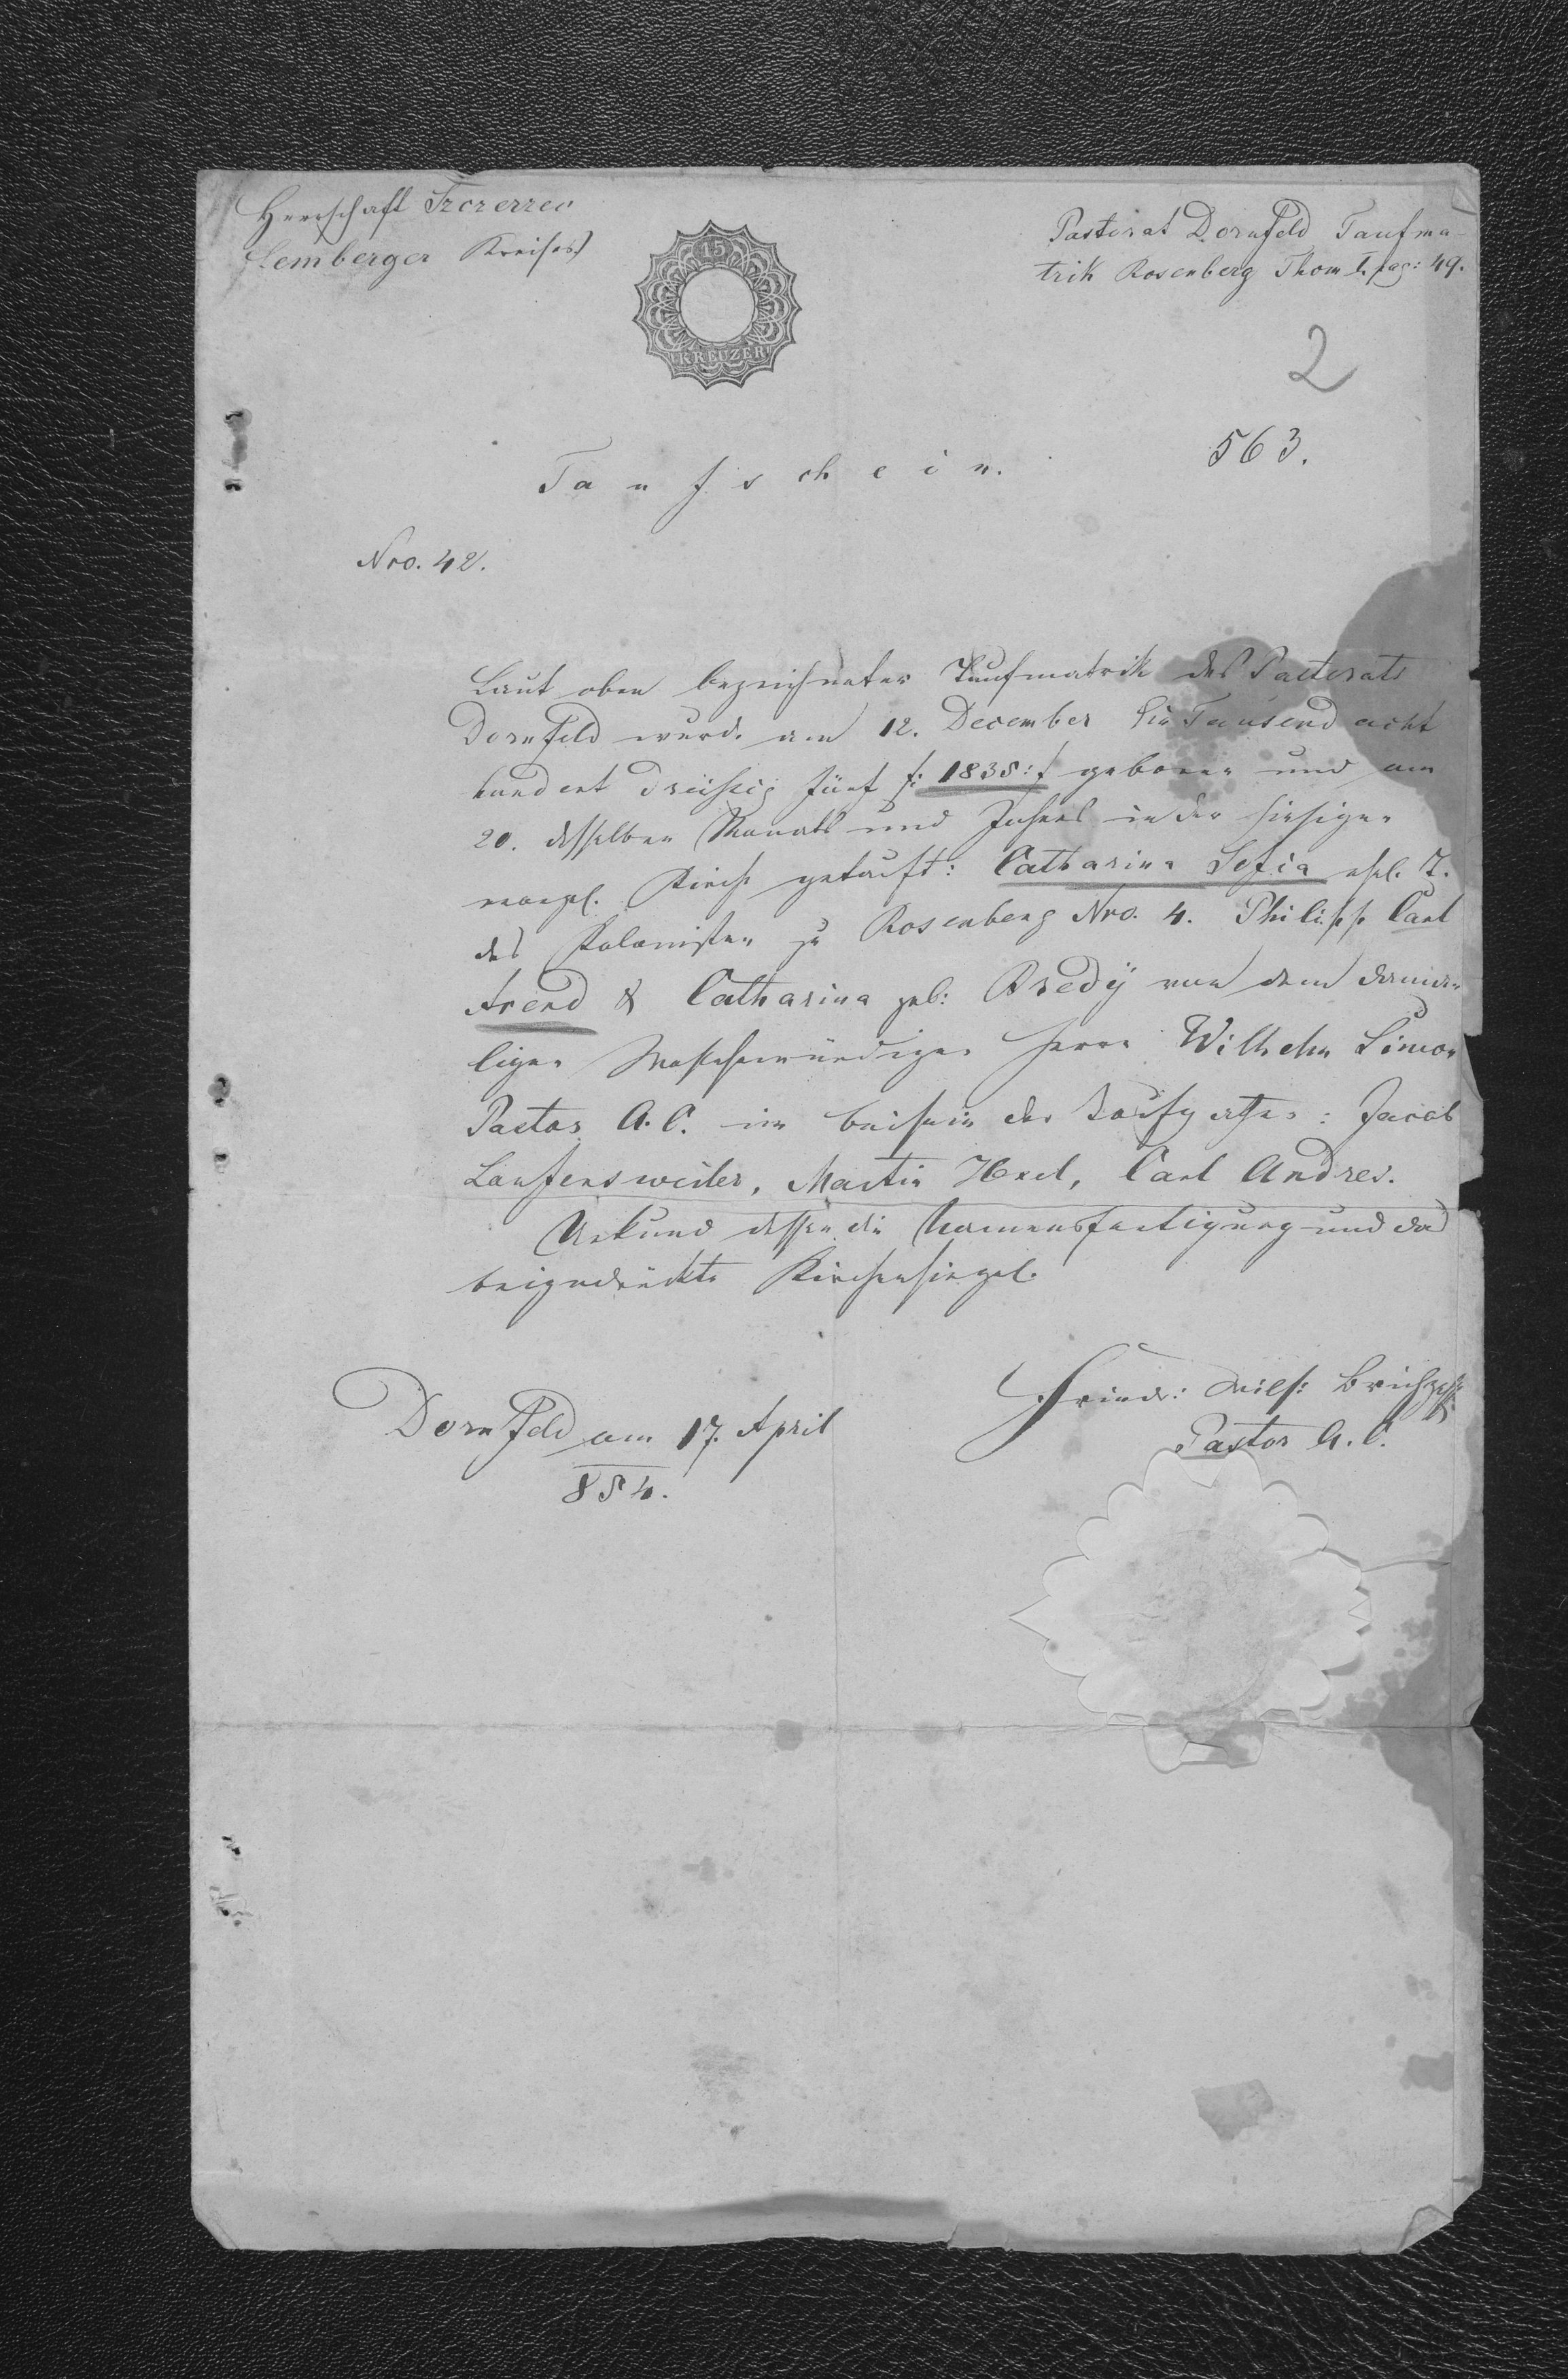 Herrschaft Szczerzec
Lemberger Kreises
Pastorat Dornfeld Taufma-
trik Rosenberg Thom I. pag: 49.
15
KREUZER
2
563.
Taufschein.
Nro. 42.
Laut oben bezeichneter Taufmatrik des Pastorats
Dornfeld wurde am 12. December Ein Tausend acht
hundert Dreißig fünf /: 1835 :/ geboren und am
20. desselben Monats und Jahres in der hiesigen
evangl. Kirche getauft: Catharina Sofia ehel. T.
des Kolonisten zu Rosenberg Nro. 4. Philipp Carl
Arend & Catharina geb: Bredÿ von dem dama
ligen Wohlehrwürdigen Herrn Wilhelm Simon
Pastor A. C. im Beisein der Taufzeugen: Jacob
Laufensweiler, Martin Hexel, Carl Andres.
Urkund dessen die Namensfertigung und das
beigedrückte Kirchensiegel.
Dornfeld am 17. April
854.
Friedr: Wilh:
Pastor A. C.